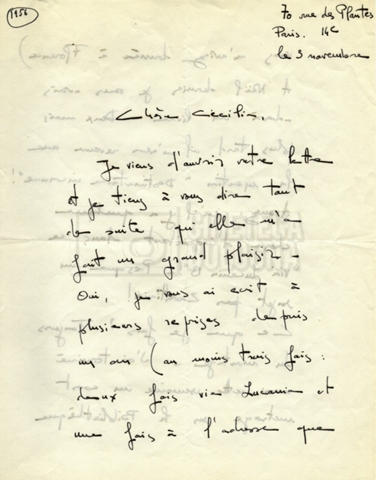 1956
70 rue des Plantes
Paris. 14e
le 3 novembre
Chère Cecilia,
Je viens d'ouvrir votre lettre
et je tiens à vous dire tout
de suite, qu'elle m'a
fait un grand plaisir.
Oui, je vous ai ecrit à
plusieurs reprises depuis
un an (au moins trois fois :
deux fois via Lucania et
une fois à l'adresse que